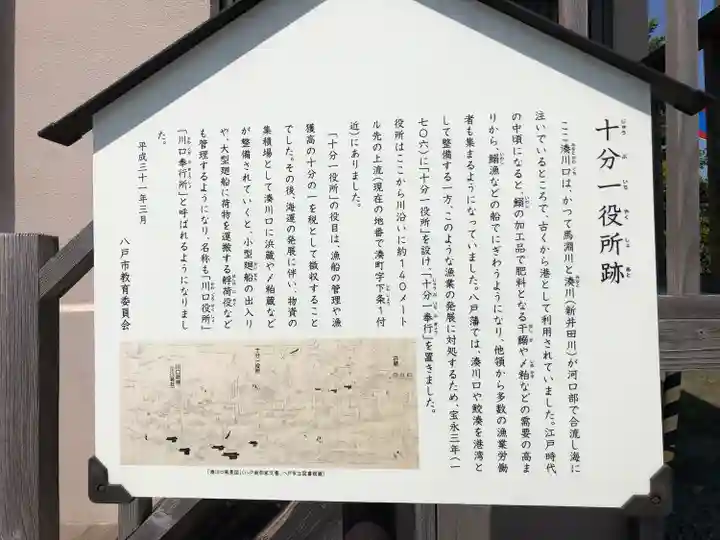 十分一役所跡
ここ湊川口は、かつて馬淵川と湊川(新井田川)が河口部で合流し海に
注いでいるところで、古くから港として利用されていました。江戸時代
の中頃になると、鰯の加工品で肥料となる干鰯や〆粕などの需要の高ま
りから、鰯漁などの船でにぎわうようになり、他領から多数の漁業労働
者も集まるようになっていました。八戸藩では、湊川口や鮫湊を港湾と
して整備する一方、このような漁業の発展に対処するため、宝永三年(一
七〇六)に「十分一役所」を設け、「十分一奉行」を置きました。
役所はここから川沿いに約140メート
ル先の上流(現在の地番で湊町字下条1付
近)にありました。
「十分一役所」の役目は、漁船の管理や漁
獲高の十分の一を税として徴収すること
でした。その後、海運の発展に伴い、物資の
集積場として湊川口に浜蔵や〆粕蔵など
が整備されていくと、小型廻船の出入り
や、大型廻船に荷物を運搬する艀荷役など
も管理するようになり、名称も「川口役所」
「川口奉行所」と呼ばれるようになりまし
た。
平成三十一年三月
八戸市教育委員会
十分一役所